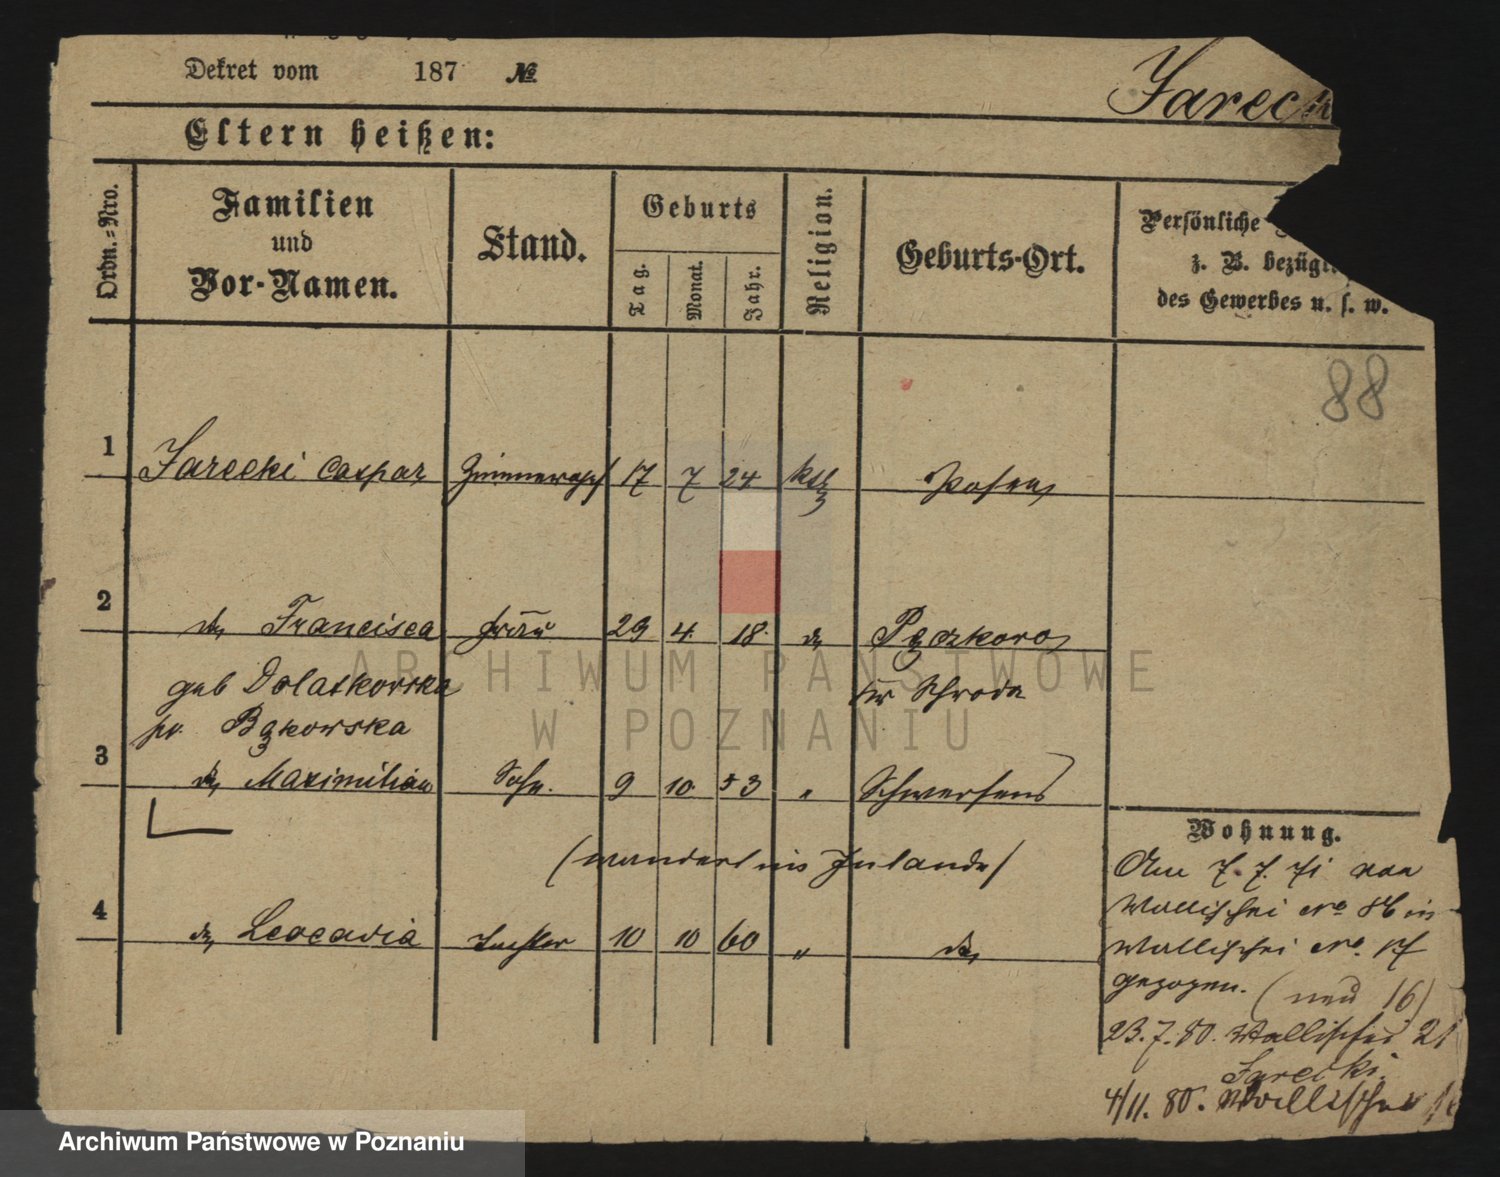 Dekret vom 187 №
Jareck
Eltern heißen:
Ordn.=Nro.
Familien
und
Vor-Namen.
Stand.
Geburts
Tag.
Monat.
Jahr.
Religion.
Geburts-Ort.
Persönliche
z. B. bezügl
des Gewerbes u. s. w.
88
1 Jarecki Caspar 17 7 24 kth Posen
2 do Francisca Frau 29 4. 18. do
geb Dolatkowska Kr Schroda
pr. Bąkowska
3 do Maximilian Sohn. 9 10. 53 " Schwersenz
(wandert im Inlande)
4 do Leocadia Tochter 10 10 60 " do
Wohnung.
Am 7. 7. 71 von
Wallischei No 86 in
Wallischei No.
gezogen. (neu 16)
23.7.80. Wallischei 21
Jarecki.
4/11. 80. Wallischei
ARCHIWUM PAŃSTWOWE
W POZNANIU
Archiwum Państwowe w Poznaniu